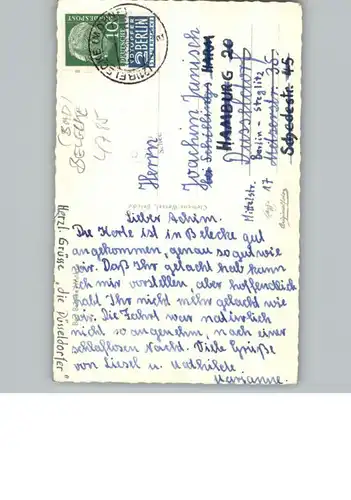 10
DEUTSCHE BUNDESPOST
NOTOPFER
2 BERLIN
STEUERMARKE
(BMD)
BELECKE
4785
Herrn
Joachim Janisch
bei Schillings
HAMBURG 20
Düsseldorf
Berlin - Steglitz
Mozartstr. 36.
Mittelstr. 17
Herzl. Grüsse „die Düsseldorfer"
Lieber Achim.
Die Karte ist in Belecke gut
angekommen, genau so gut wie
wir. Daß Ihr gelacht habt kann
ich mir vorstellen, aber hoffendlich
habt Ihr nicht mehr gelacht wie
wir. Die Fahrt war natürlich
nicht so angenehm, nach einer
schlaflosen Nacht. Viele Grüße
von Liesel u. Mathilde
Marianne.